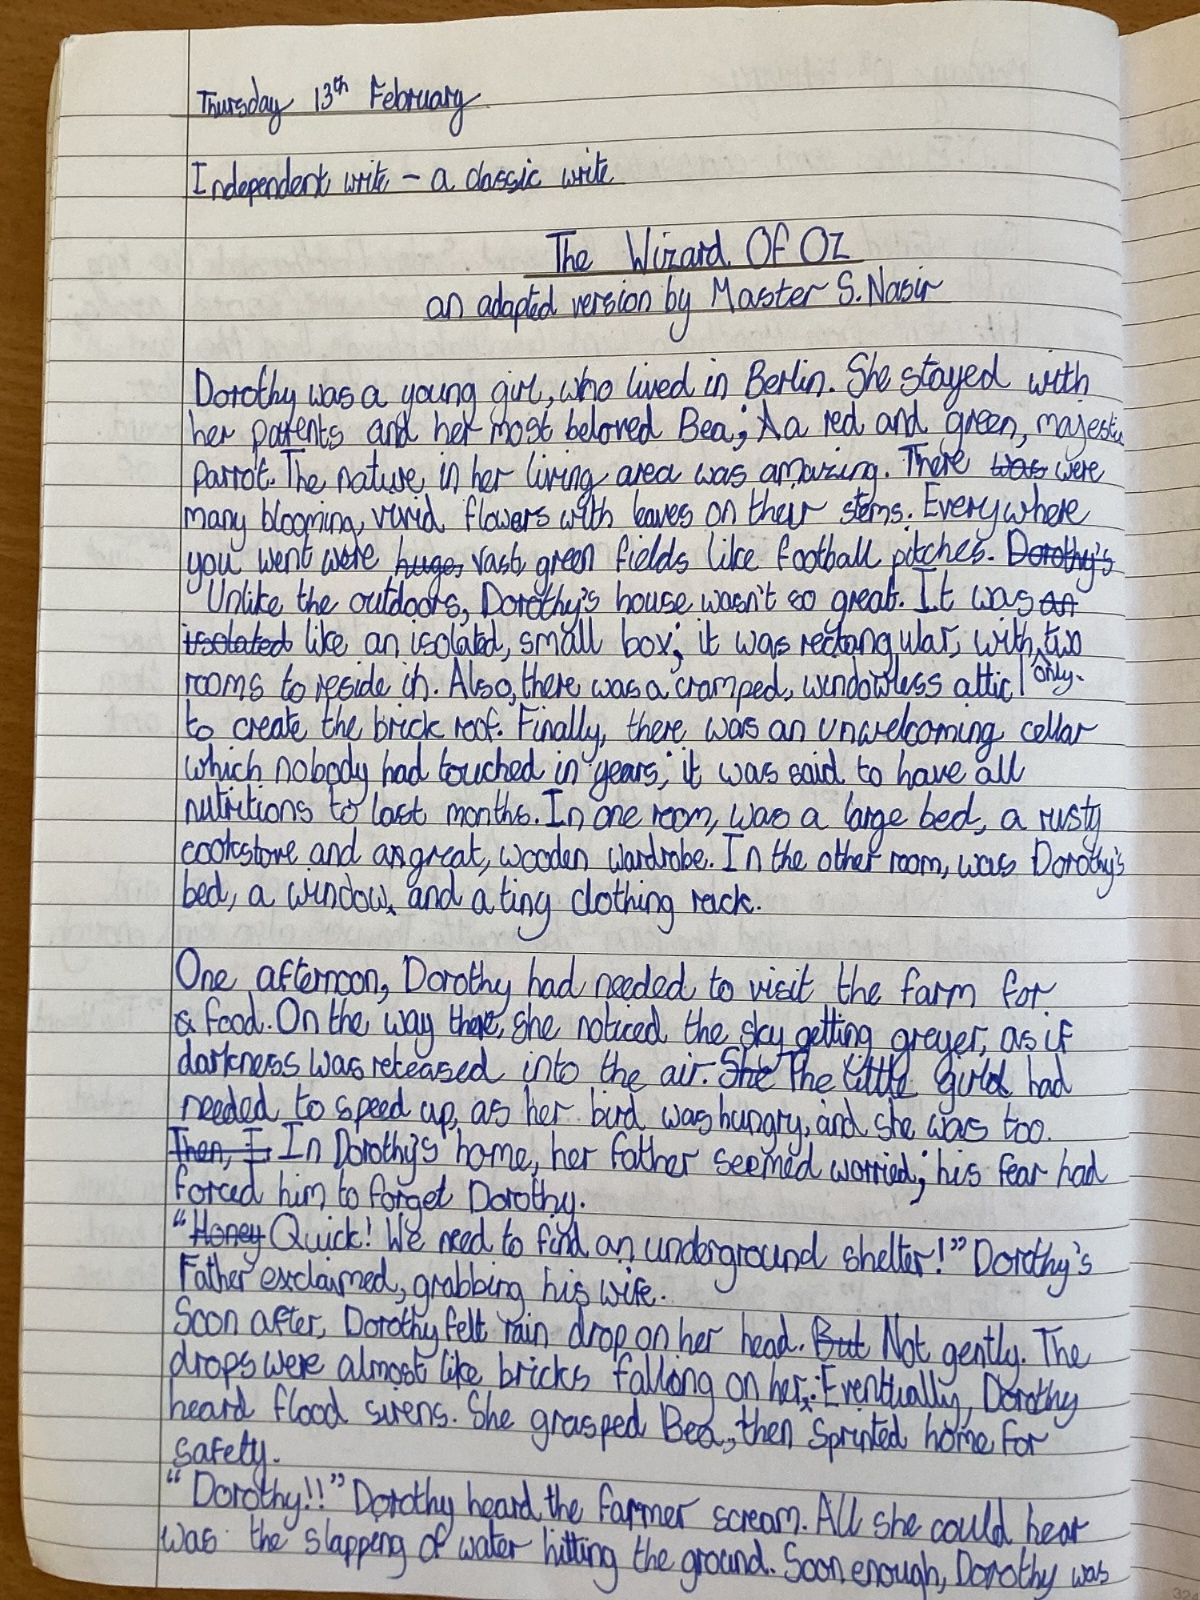 Thursday 13th February
Independent write - a classic write
The Wizard Of Oz
an adapted version by Master S. Nasir
Dorothy was a young girl, who lived in Berlin. She stayed with
her parents and her most beloved Bea; a red and green, majestic
parrot. The nature in her living area was amazing. There was were
many blooming, vivid flowers with leaves on their stems. Everywhere
you went were huge, vast, green fields like football pitches. Dorothy's
Unlike the outdoors, Dorothy's house wasn't so great. It was an
isolated like an isolated, small box; it was rectangular, with two
rooms to reside in. Also, there was a cramped, windowless attic only
to create the brick roof. Finally, there was an unwelcoming cellar
which nobody had touched in years; it was said to have all
nutritions to last months. In one room, was a large bed, a rusty
cookstove and a great, wooden wardrobe. In the other room, was Dorothy's
bed, a window, and a tiny clothing rack.
One afternoon, Dorothy had needed to visit the farm for
food. On the way there, she noticed the sky getting greyer, as if
darkness was released into the air. She The little girl had
needed to speed up, as her bird was hungry, and she was too.
Then, I In Dorothy's home, her father seemed worried; his fear had
forced him to forget Dorothy.
"Honey Quick! We need to find an underground shelter!" Dorothy's
Father exclaimed, grabbing his wife.
Soon after, Dorothy felt rain drop on her head. But Not gently. The
drops were almost like bricks falling on her. Eventually, Dorothy
heard flood sirens. She grasped Bea, then sprinted home for
safety.
"Dorothy!!" Dorothy heard the farmer scream. All she could hear
was the slapping of water hitting the ground. Soon enough, Dorothy was